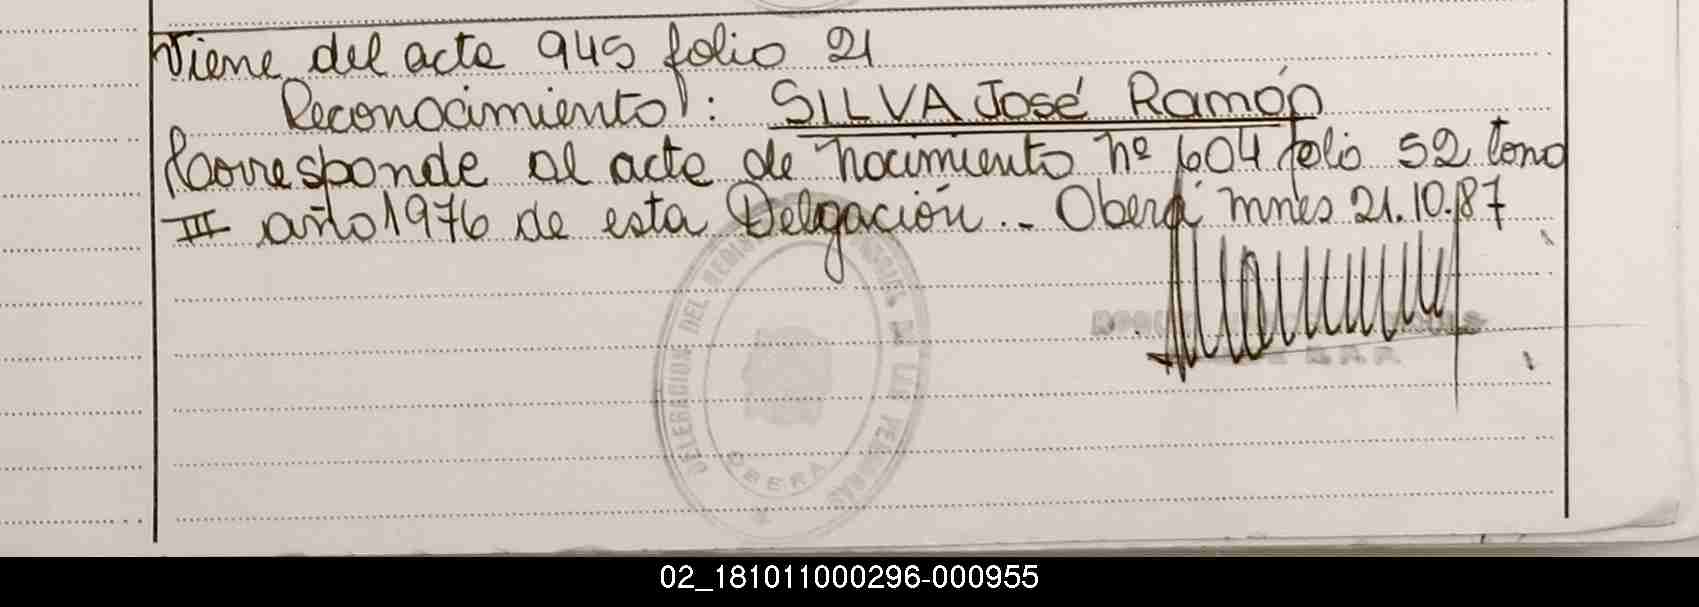 Viene del acta 945 folio 21
Reconocimiento: SILVA José Ramón
Corresponde al acta de nacimiento nº 604 folio 52 tomo
III año 1976 de esta Delgación.- Oberá mnes 21.10.87
DELEGACION DEL REGISTRO DE LAS PERSONAS
OBERA
02_181011000296-000955